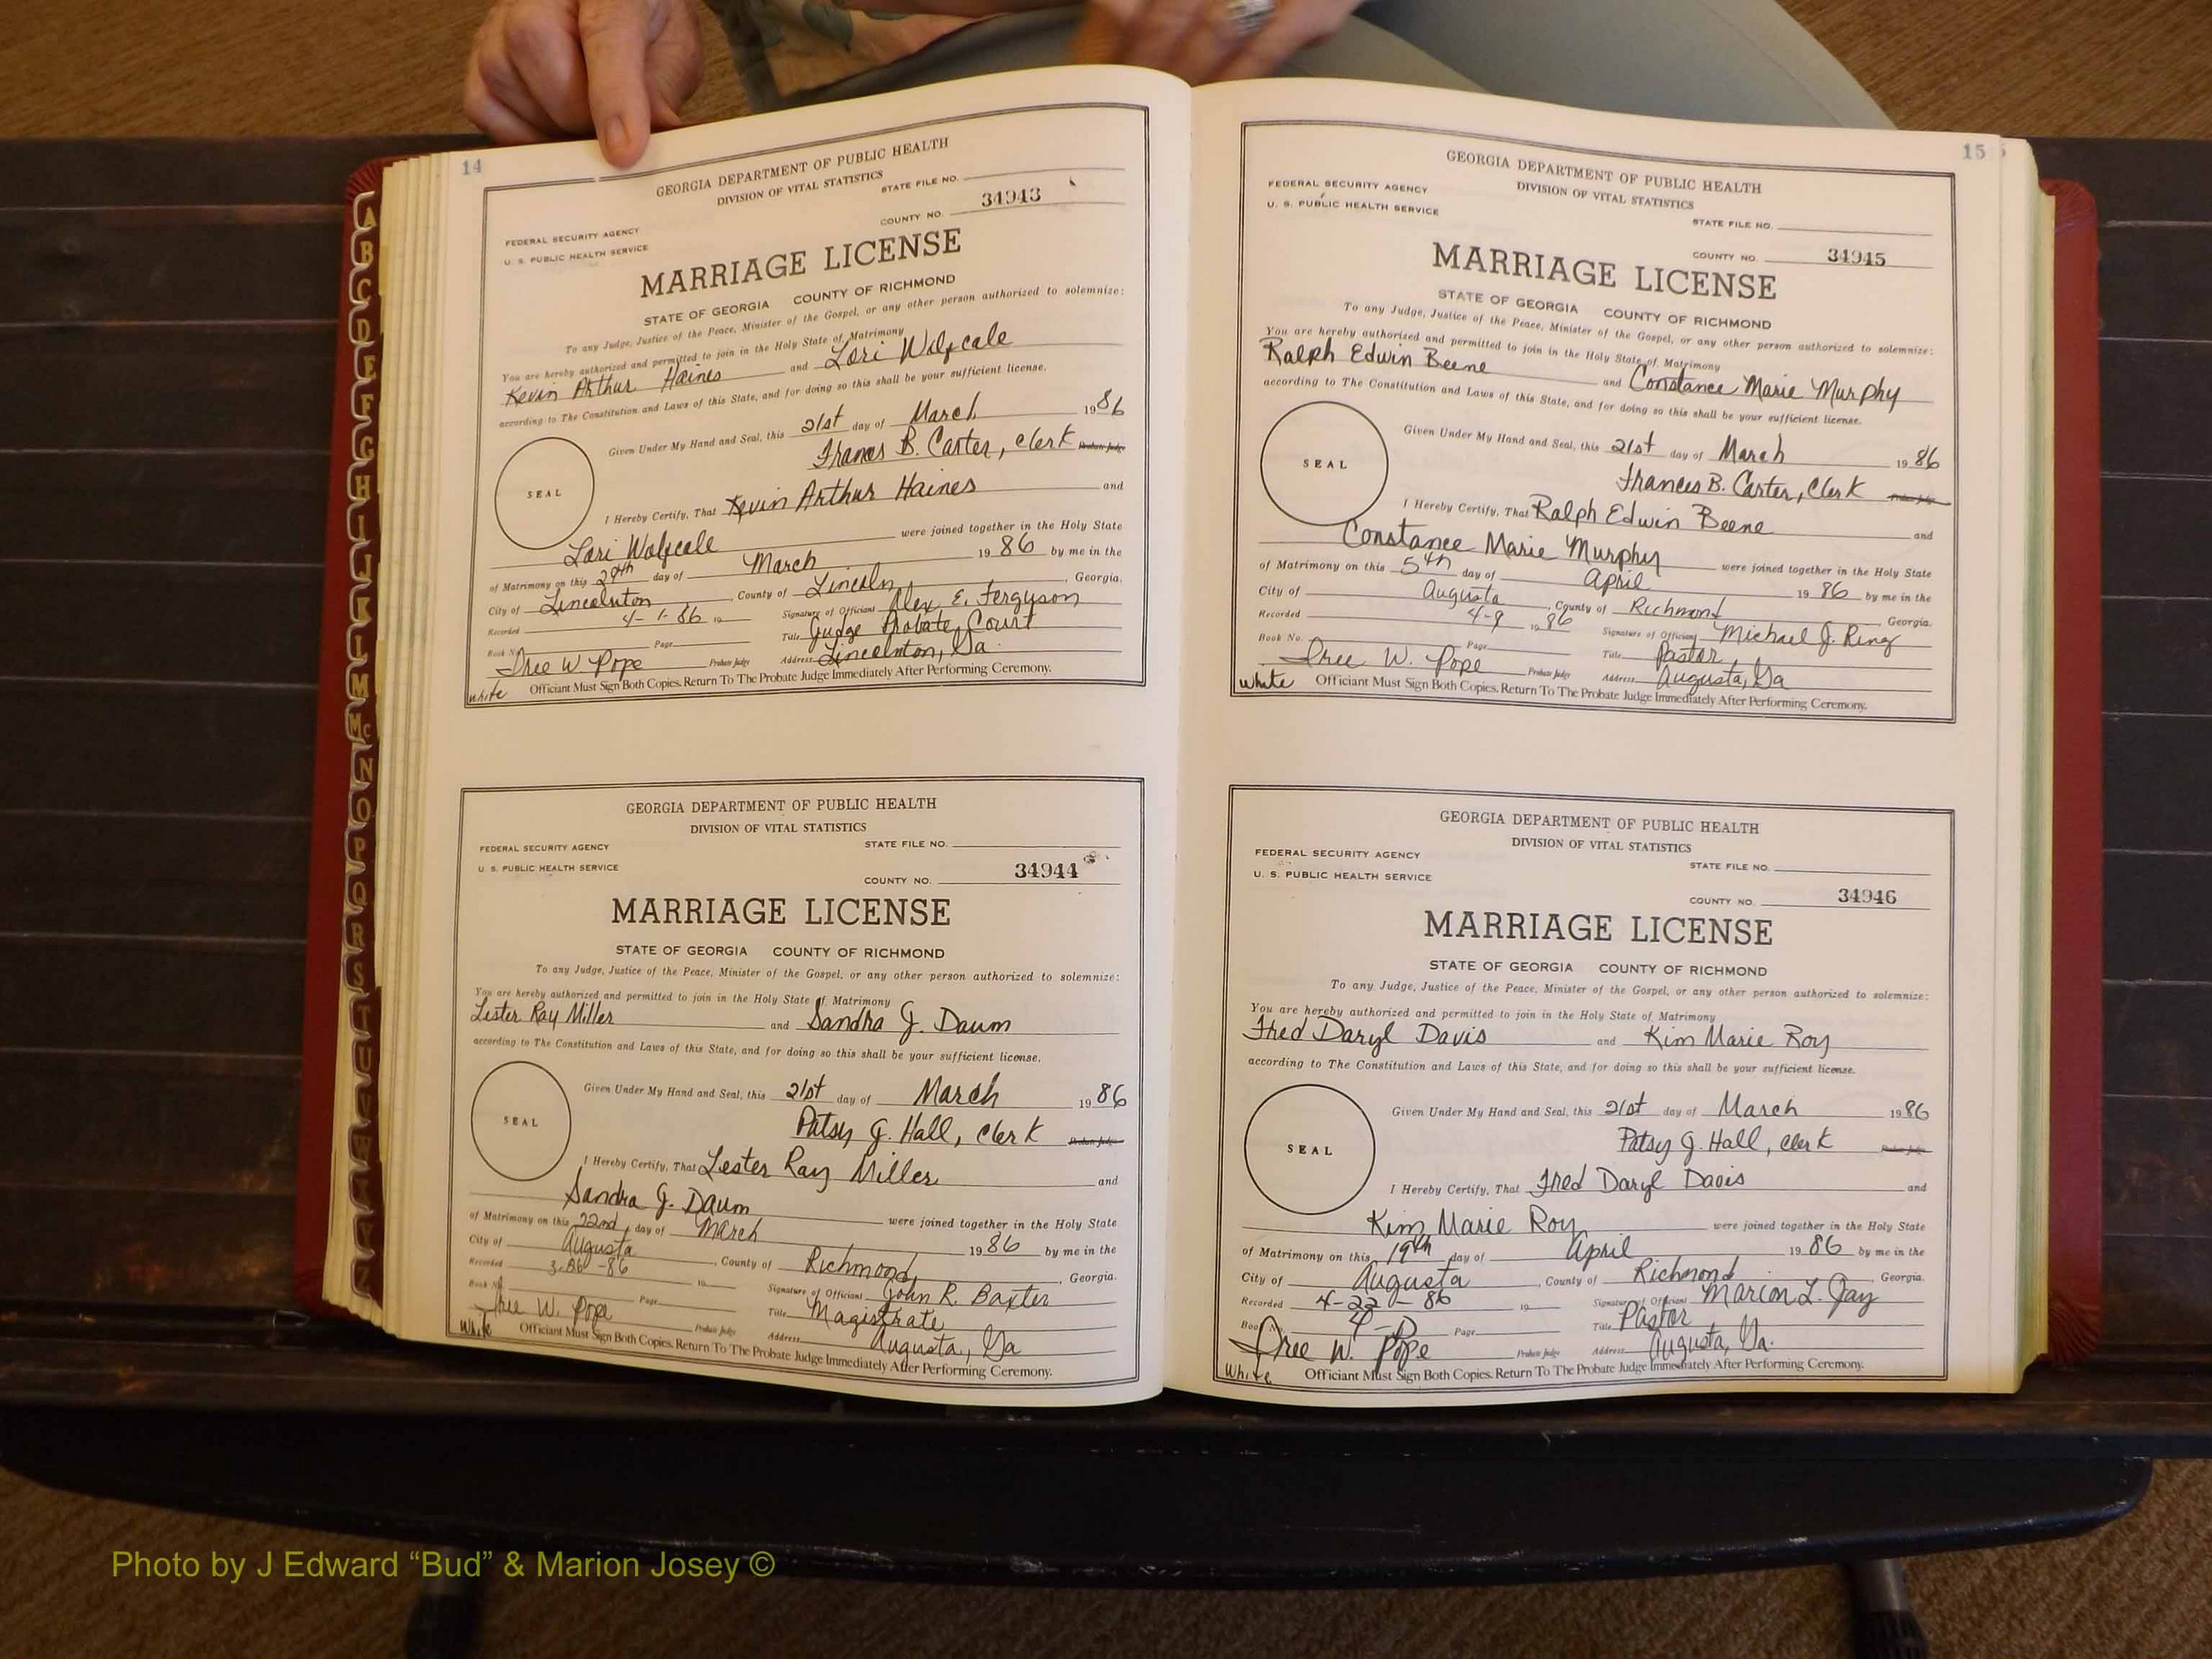 14
GEORGIA DEPARTMENT OF PUBLIC HEALTH
DIVISION OF VITAL STATISTICS
STATE FILE NO.
FEDERAL SECURITY AGENCY
COUNTY NO. 34943
U. S. PUBLIC HEALTH SERVICE
MARRIAGE LICENSE
STATE OF GEORGIA COUNTY OF RICHMOND
To any Judge, Justice of the Peace, Minister of the Gospel, or any other person authorized to solemnize:
You are hereby authorized and permitted to join in the Holy State of Matrimony
Kevin Arthur Haines and Lori
according to The Constitution and Laws of this State, and for doing so this shall be your sufficient license.
Given Under My Hand and Seal, this 21st day of March 1986
Frances B. Carter, Clerk Probate Judge
SEAL
I Hereby Certify, That Kevin Arthur Haines and
Lori were joined together in the Holy State
of Matrimony on this 29th day of March 1986 by me in the
City of Lincolnton, County of Lincoln, Georgia.
Recorded 4-1-86 19 Signature of Official Alex E. Ferguson
Book No. Page Title Judge Probate Court
W. Pope Probate Judge Address Lincolnton, Ga.
White Officiant Must Sign Both Copies. Return To The Probate Judge Immediately After Performing Ceremony.
GEORGIA DEPARTMENT OF PUBLIC HEALTH
DIVISION OF VITAL STATISTICS
FEDERAL SECURITY AGENCY STATE FILE NO.
U. S. PUBLIC HEALTH SERVICE COUNTY NO. 34944
MARRIAGE LICENSE
STATE OF GEORGIA COUNTY OF RICHMOND
To any Judge, Justice of the Peace, Minister of the Gospel, or any other person authorized to solemnize:
You are hereby authorized and permitted to join in the Holy State of Matrimony
Lester Ray Miller and Sandra J. Daum
according to The Constitution and Laws of this State, and for doing so this shall be your sufficient license.
Given Under My Hand and Seal, this 21st day of March 1986
Patsy G. Hall, Clerk Probate Judge
SEAL
I Hereby Certify, That Lester Ray Miller and
Sandra J. Daum were joined together in the Holy State
of Matrimony on this 22nd day of March 1986 by me in the
City of Augusta, County of Richmond, Georgia.
Recorded 3-26-86 19 Signature of Official John R. Baxter
Book No. Page Title Magistrate
W. Pope Probate Judge Address Augusta, Ga
White Officiant Must Sign Both Copies. Return To The Probate Judge Immediately After Performing Ceremony.
15
GEORGIA DEPARTMENT OF PUBLIC HEALTH
DIVISION OF VITAL STATISTICS
FEDERAL SECURITY AGENCY
U. S. PUBLIC HEALTH SERVICE
STATE FILE NO.
COUNTY NO. 34945
MARRIAGE LICENSE
STATE OF GEORGIA COUNTY OF RICHMOND
To any Judge, Justice of the Peace, Minister of the Gospel, or any other person authorized to solemnize:
You are hereby authorized and permitted to join in the Holy State of Matrimony
Ralph Edwin Beene and Constance Marie Murphy
according to The Constitution and Laws of this State, and for doing so this shall be your sufficient license.
Given Under My Hand and Seal, this 21st day of March 1986
Frances B. Carter, Clerk Probate Judge
SEAL
I Hereby Certify, That Ralph Edwin Beene and
Constance Marie Murphy were joined together in the Holy State
of Matrimony on this 5th day of April 1986 by me in the
City of Augusta, County of Richmond, Georgia.
Recorded 4-9 1986 Signature of Official Michael J. Ring
Book No. Page Title Pastor
W. Pope Probate Judge Address Augusta, Ga
White Officiant Must Sign Both Copies. Return To The Probate Judge Immediately After Performing Ceremony.
GEORGIA DEPARTMENT OF PUBLIC HEALTH
DIVISION OF VITAL STATISTICS
FEDERAL SECURITY AGENCY
STATE FILE NO.
U. S. PUBLIC HEALTH SERVICE
COUNTY NO. 34946
MARRIAGE LICENSE
STATE OF GEORGIA COUNTY OF RICHMOND
To any Judge, Justice of the Peace, Minister of the Gospel, or any other person authorized to solemnize:
You are hereby authorized and permitted to join in the Holy State of Matrimony
Fred Daryl Davis and Kim Marie Roy
according to The Constitution and Laws of this State, and for doing so this shall be your sufficient license.
Given Under My Hand and Seal, this 21st day of March 1986
Patsy G. Hall, Clerk Probate Judge
SEAL
I Hereby Certify, That Fred Daryl Davis and
Kim Marie Roy were joined together in the Holy State
of Matrimony on this 19th day of April 1986 by me in the
City of Augusta, County of Richmond, Georgia.
Recorded 4-22-86 19 Signature of Official Marion L. Jay
Page Title Pastor
W. Pope Probate Judge Address Augusta, Ga.
White Officiant Must Sign Both Copies. Return To The Probate Judge Immediately After Performing Ceremony.
A
B
C
D
E
F
G
H
I
J
K
L
M
Mc
N
O
P
Q
R
S
T
U
V
W
Photo by J Edward “Bud” & Marion Josey ©